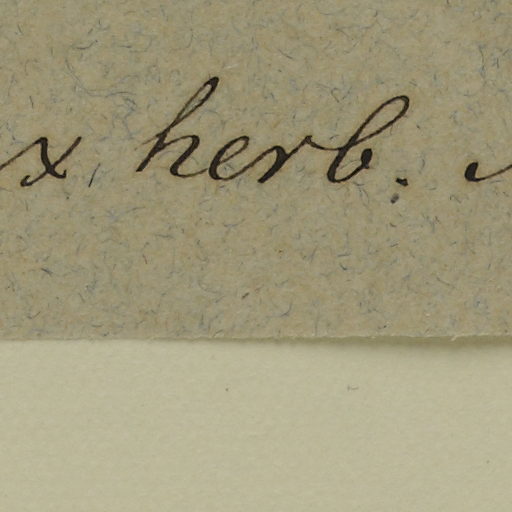 x herb.